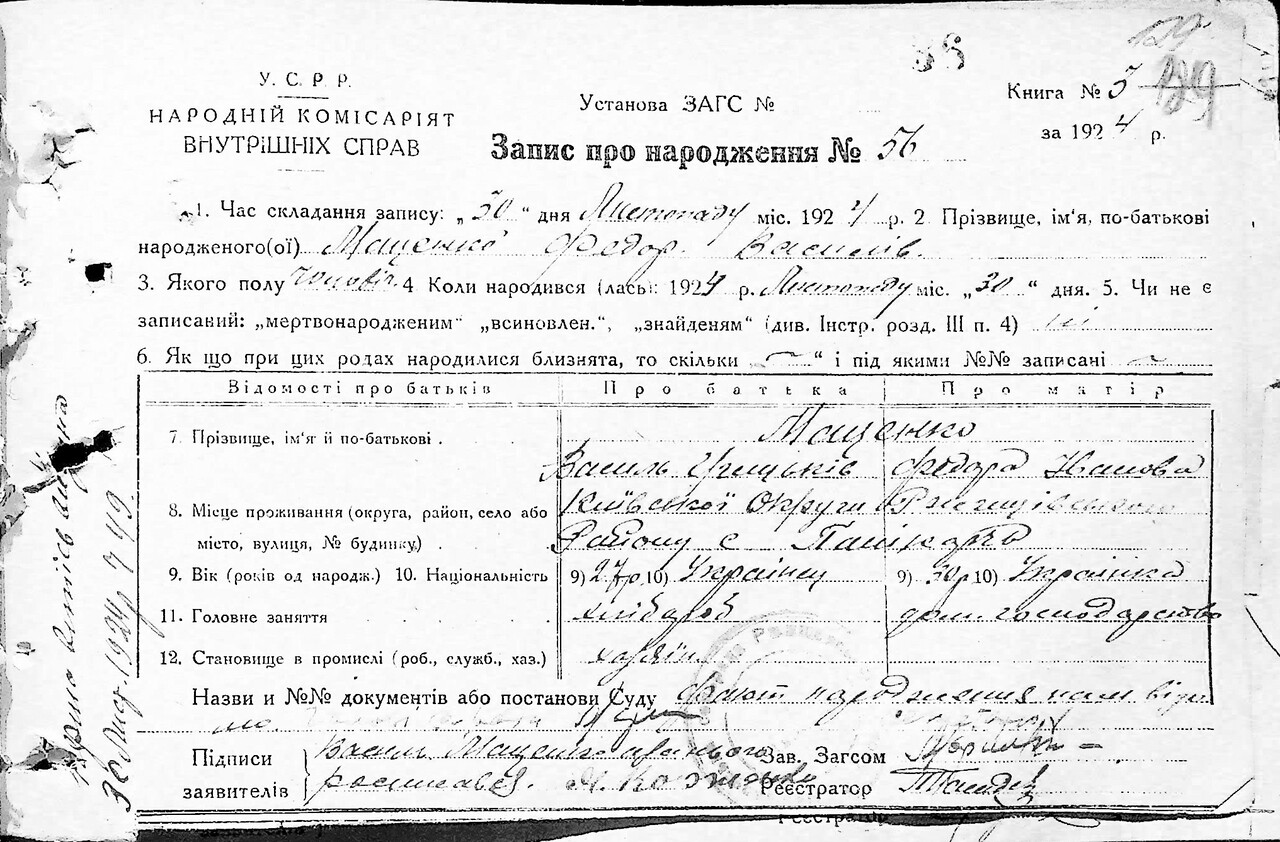 У. С. Р. Р.
НАРОДНІЙ КОМІСАРІЯТ
ВНУТРІШНІХ СПРАВ
Установа ЗАГС №
Запис про народження № 56
Книга № 3
за 1924 р.
1. Час складання запису: „ 30 “ дня Листопаду міс. 1924 р. 2. Прізвище, ім'я, по-батькові
народженого(ої) Маценко Федор Василів.
3. Якого полу чоловіч. 4 Коли народився (лась): 1924 р. Листопаду міс. „ 30 “ дня. 5. Чи не є
записаний: „мертвонародженим“ „всиновлен.“, „знайденям“ (див. Інстр. розд. III п. 4) ні
6. Як що при цих родах народилися близнята, то скільки „ — “ і під якими №№ записані —
Відомості про батьків Про батька Про матір
7. Прізвище, ім'я й по-батькові . Маценко
Василь Грицьків Федора Иванова
8. Місце проживання (округа, район, село або Київської Округи Ржищівського
місто, вулиця, № будинку.) . Району с
9. Вік (років од народж.) 10. Національність 9) 27р 10) Українец 9) 30р 10) Українка
11. Головне заняття хлібороб дом. господарство
12. Становище в промислі (роб., служб., хаз.) хазяїн
Назви и №№ документів або постанови Суду Факт народження
Підписи Василь Маценко Зав. Загсом
заявителів росписався. Реєстратор
Реєстратор
30 Лист. 1924р